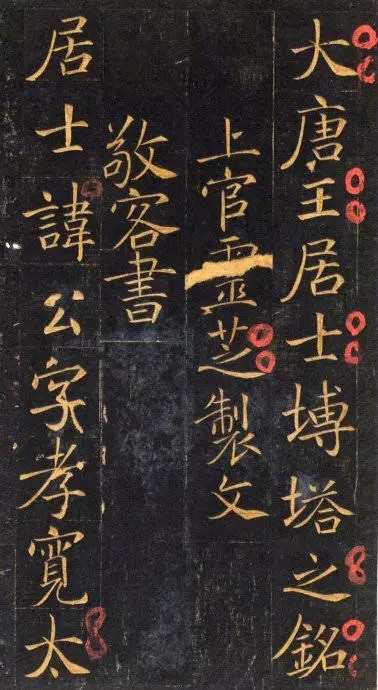 大唐王居士塼塔之銘
上官靈芝製文
敬客書
居士諱公字孝寛太